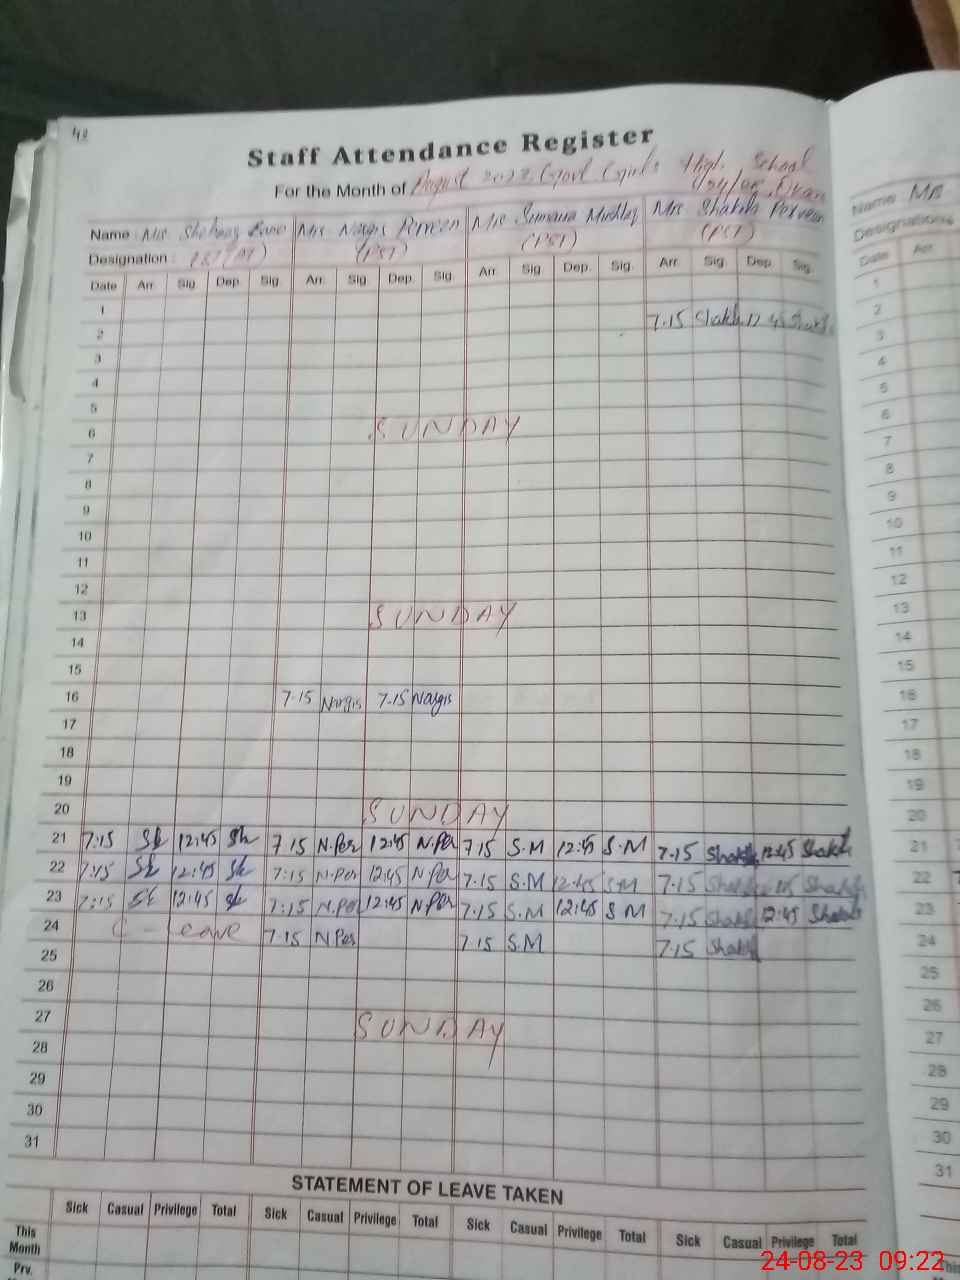 Staff Attendance Register
For the Month of August Govt Girls High School
Name : Mrs Mrs Nargis Perveen Mrs Sumaira Mushtaq Mrs Shakila Perveen
Designation : (PST) (PST) (PST)
Date Arr. Sig. Dep. Sig. Arr. Sig. Dep. Sig. Arr. Sig. Dep. Sig. Arr. Sig. Dep. Sig.
1
2 7.15 12 45
3
4
5
6 SUNDAY
7
8
9
10
11
12
13 SUNDAY
14
15
16 7.15 Nargis 7.15 Nargis
17
18
19
20 SUNDAY
21 7:15 Sh 12:45 Sh 7 15 N.Per 12:45 N.Per 7 15 S.M 12:45 S.M 7.15 12:45
22 7:15 Sh 12:45 Sh 7:15 N.Per 12:45 N.Per 7.15 S.M 12:45 S.M 7.15
23 7:15 Sh 12:45 Sh 7:15 N.Per 12:45 N.Per 7.15 S.M 12:45 S M 7.15 12:45
24 C - Leave 7.15 N.Per 7 15 S.M 7.15
25
26
27 SUNDAY
28
29
30
31
STATEMENT OF LEAVE TAKEN
Sick Casual Privilege Total Sick Casual Privilege Total Sick Casual Privilege Total Sick Casual Privilege Total
This Month
Prv.
Name Mrs
Designation
Date Arr.
1
2
3
4
5
6
7
8
9
10
11
12
13
14
15
16
17
18
19
20
21
22
23
24
25
26
27
28
29
30
31
24-08-23 09:22